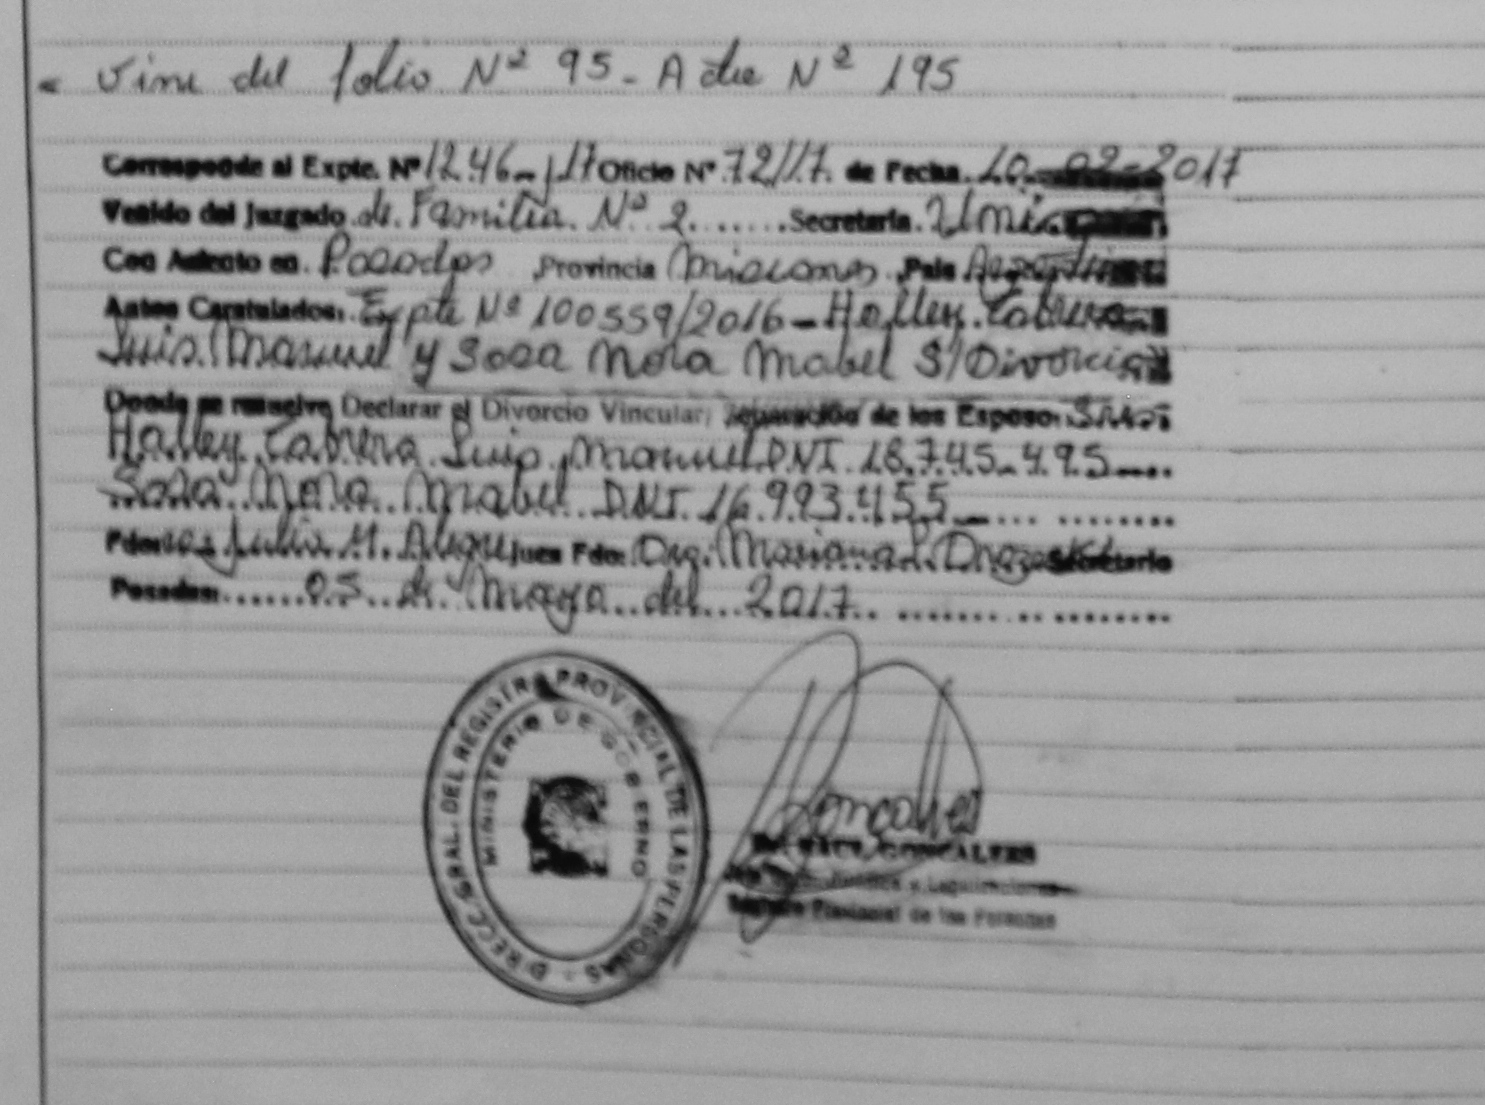 Vine del folio Nº 95 - Acta Nº 195
Corresponde al Expte. Nº 1246-J-17 Oficio Nº 72/17. de Fecha. 10-02-2017
Venido del Juzgado de Familia Nº 2 ...... Secretaría. Unica
Con Asiento en. Posadas Provincia Misiones País Argentina
Autos Caratulados: Expte Nº 100559/2016 - Halley Cabrera
Luis Manuel y Sosa Nora Mabel S/ Divorcio
Donde se resuelve Declarar el Divorcio Vincular, Separación de los Esposo:
Halley Cabrera Luis Manuel DNI 18.745.495
Sosa Nora Mabel DNI. 16.993.455
Fdo: Julia M. Juez Fdo: Mariana Secretario
Posadas: ...... 05 de Mayo del 2017
DIRECC. GRAL. DEL REGISTRO PROVINCIAL DE LAS PERSONAS
MINISTERIO DE GOBIERNO
GONCALVES
Registro Provincial de las Personas